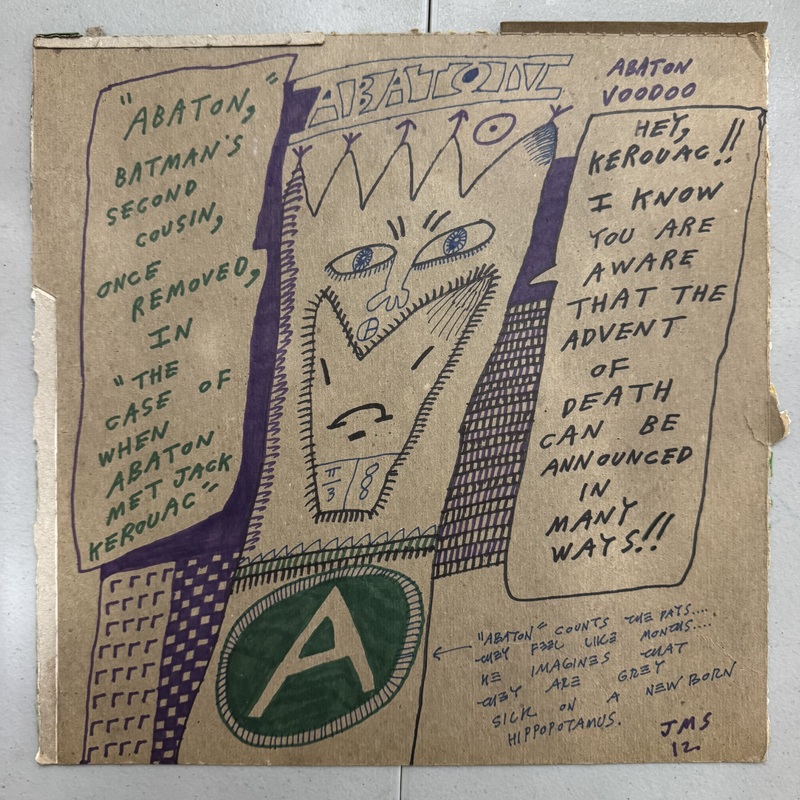 "ABATON,"
BATMAN'S
SECOND
COUSIN,
ONCE
REMOVED,
IN
"THE
CASE OF
WHEN
ABATON
MET JACK
KEROUAC"
ABATON
ABATON
VOODOO
HEY,
KEROUAC!!
I KNOW
YOU ARE
AWARE
THAT THE
ADVENT
OF
DEATH
CAN BE
ANNOUNCED
IN
MANY
WAYS!!
π 8
3 8
A
"ABATON" COUNTS THE DAYS....
THEY FEEL LIKE MONTHS....
HE IMAGINES THAT
THEY ARE GREY
SICK ON A NEW BORN
HIPPOPOTAMUS.
JMS
12.